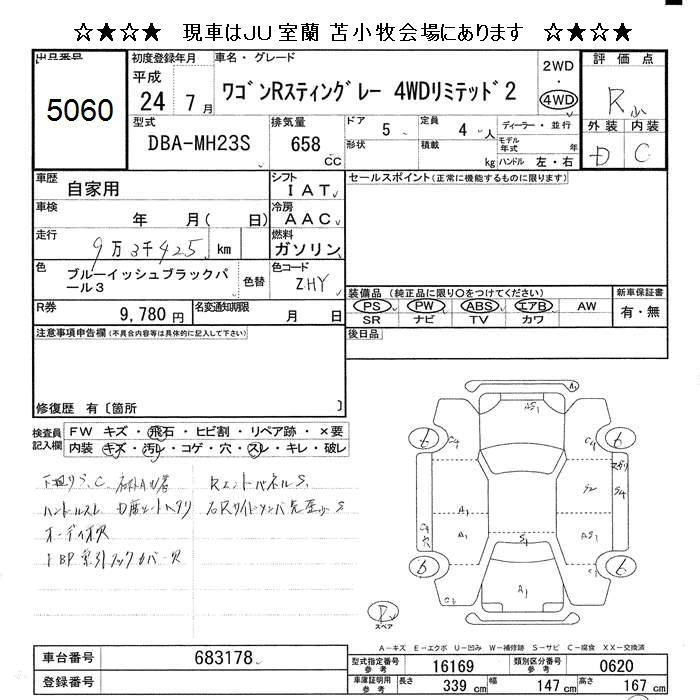 ★☆★☆ 現車はJU室蘭 苫小牧会場にあります ☆★☆★
出品番号
5060
初度登録年月
平成
24 7月
車名・グレード
ワゴンRスティングレー 4WDリミテッド2
2WD
・
4WD
評価点
R
外装 内装
D C
型式
DBA-MH23S
排気量
658
cc
ドア
5
定員
4人
形状
積載
kg
ディーラー・並行
モデル
年式
年
ハンドル 左・右
車歴
自家用
シフト
IAT
車検
年 月( 日)
冷房
AAC
走行
9万3千425 km
燃料
ガソリン
色
ブルーイッシュブラックパ
ール3
色替
色コード
ZHY
R券
9,780円
名変通知期限
月 日
セールスポイント(正常に機能するものに限ります)
装備品 (純正品に限り○をつけてください)
PS PW ABS エアB AW
SR ナビ TV カワ
新車保証書
有・無
後日品
注意事項申告欄(不具合内容等は具体的に記入して下さい)
修復歴 有〔箇所 〕
検査員
記入欄
FW キズ・飛石・ヒビ割・リペア跡・×要
内装・キズ・汚レ・コゲ・穴・スレ・キレ・破レ
下廻りS、C
ハンドルスレ
オーディオ欠
Rエンドパネル S
A1
AS1
C4
C4
A1
A1
S1
A1
S4
スペア
A-キズ E-エクボ U-凹み W-補修跡 S-サビ C-腐食 XX-交換済
車台番号
683178
登録番号
型式指定番号
参考
16169
類別区分番号
参考
0620
車庫証明用
参考
長さ
339cm
幅
147cm
高さ
167cm